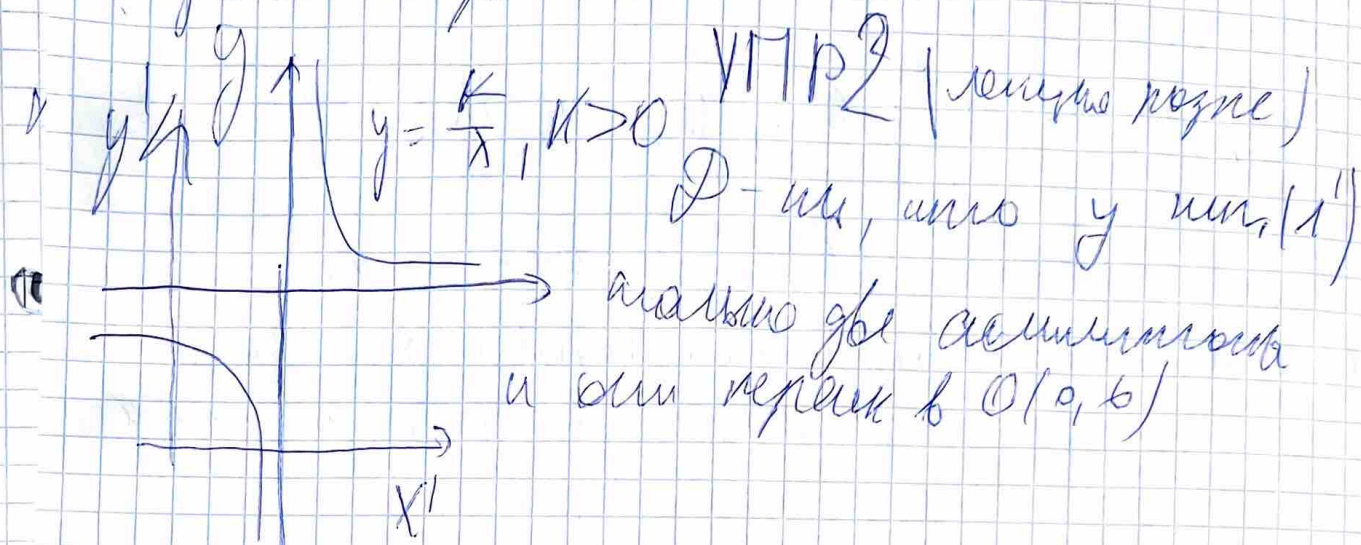 y' y
y = K/x, K>0
УПР2 (лекция позже)
Д-ть, что у гип. (1')
только две асимптоты
и они перевек в O(a, b)
x'